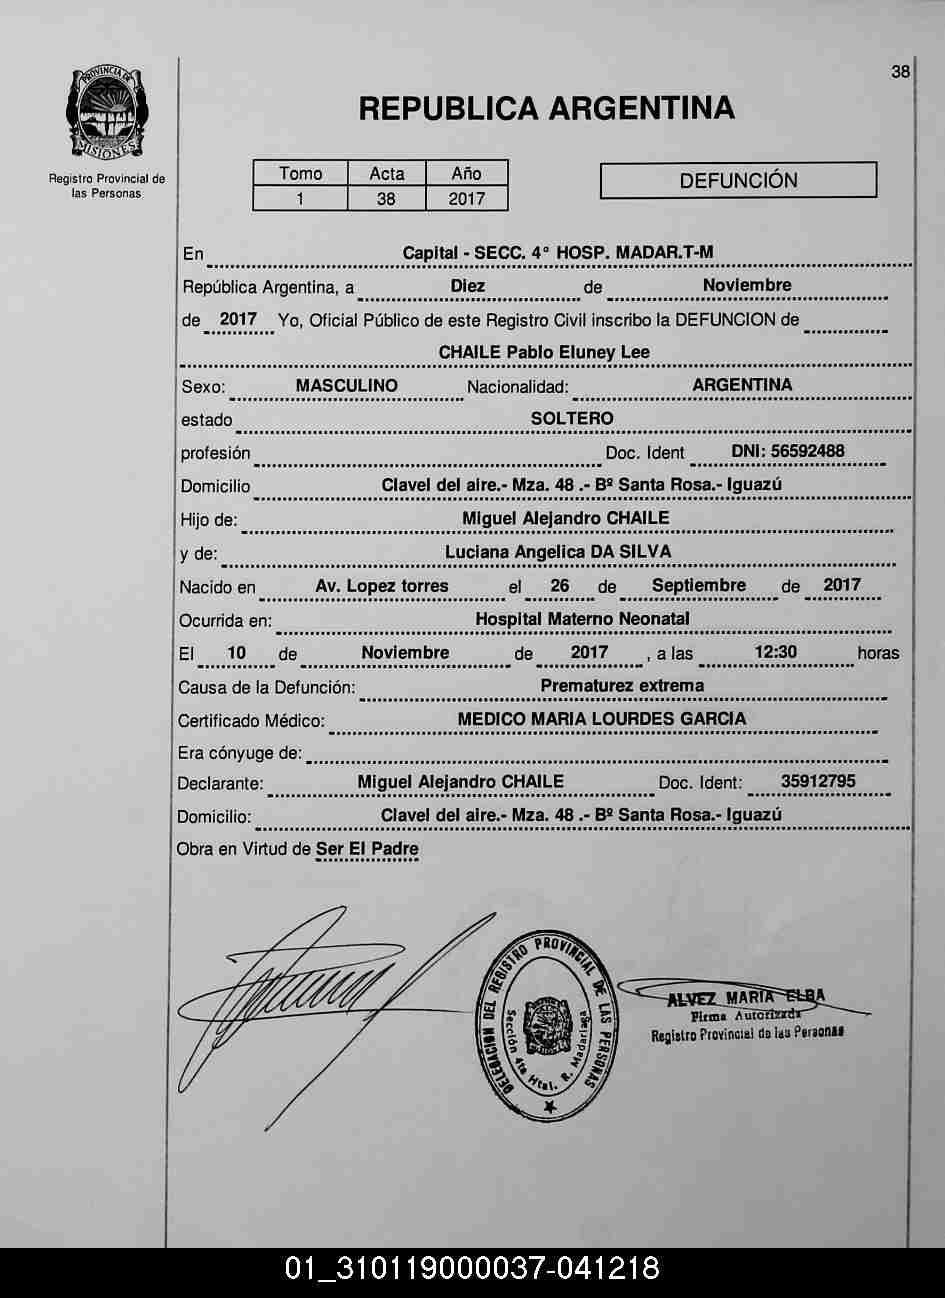 38
PROVINCIA DE
MISIONES
Registro Provincial de
las Personas
REPUBLICA ARGENTINA
Tomo Acta Año
1 38 2017
DEFUNCIÓN
En Capital - SECC. 4° HOSP. MADAR.T-M
República Argentina, a Diez de Noviembre
de 2017 Yo, Oficial Público de este Registro Civil inscribo la DEFUNCION de
CHAILE Pablo Eluney Lee
Sexo: MASCULINO Nacionalidad: ARGENTINA
estado SOLTERO
profesión Doc. Ident DNI: 56592488
Domicilio Clavel del aire.- Mza. 48 .- Bº Santa Rosa.- Iguazú
Hijo de: Miguel Alejandro CHAILE
y de: Luciana Angelica DA SILVA
Nacido en Av. Lopez torres el 26 de Septiembre de 2017
Ocurrida en: Hospital Materno Neonatal
El 10 de Noviembre de 2017 , a las 12:30 horas
Causa de la Defunción: Prematurez extrema
Certificado Médico: MEDICO MARIA LOURDES GARCIA
Era cónyuge de:
Declarante: Miguel Alejandro CHAILE Doc. Ident: 35912795
Domicilio: Clavel del aire.- Mza. 48 .- Bº Santa Rosa.- Iguazú
Obra en Virtud de Ser El Padre
DELEGACION DEL REGISTRO PROVINCIAL DE LAS PERSONAS
Sección 4ta Htal. R. Madariaga
ALVEZ MARIA ELBA
Firma Autorizada
Registro Provincial de las Personas
01_310119000037-041218